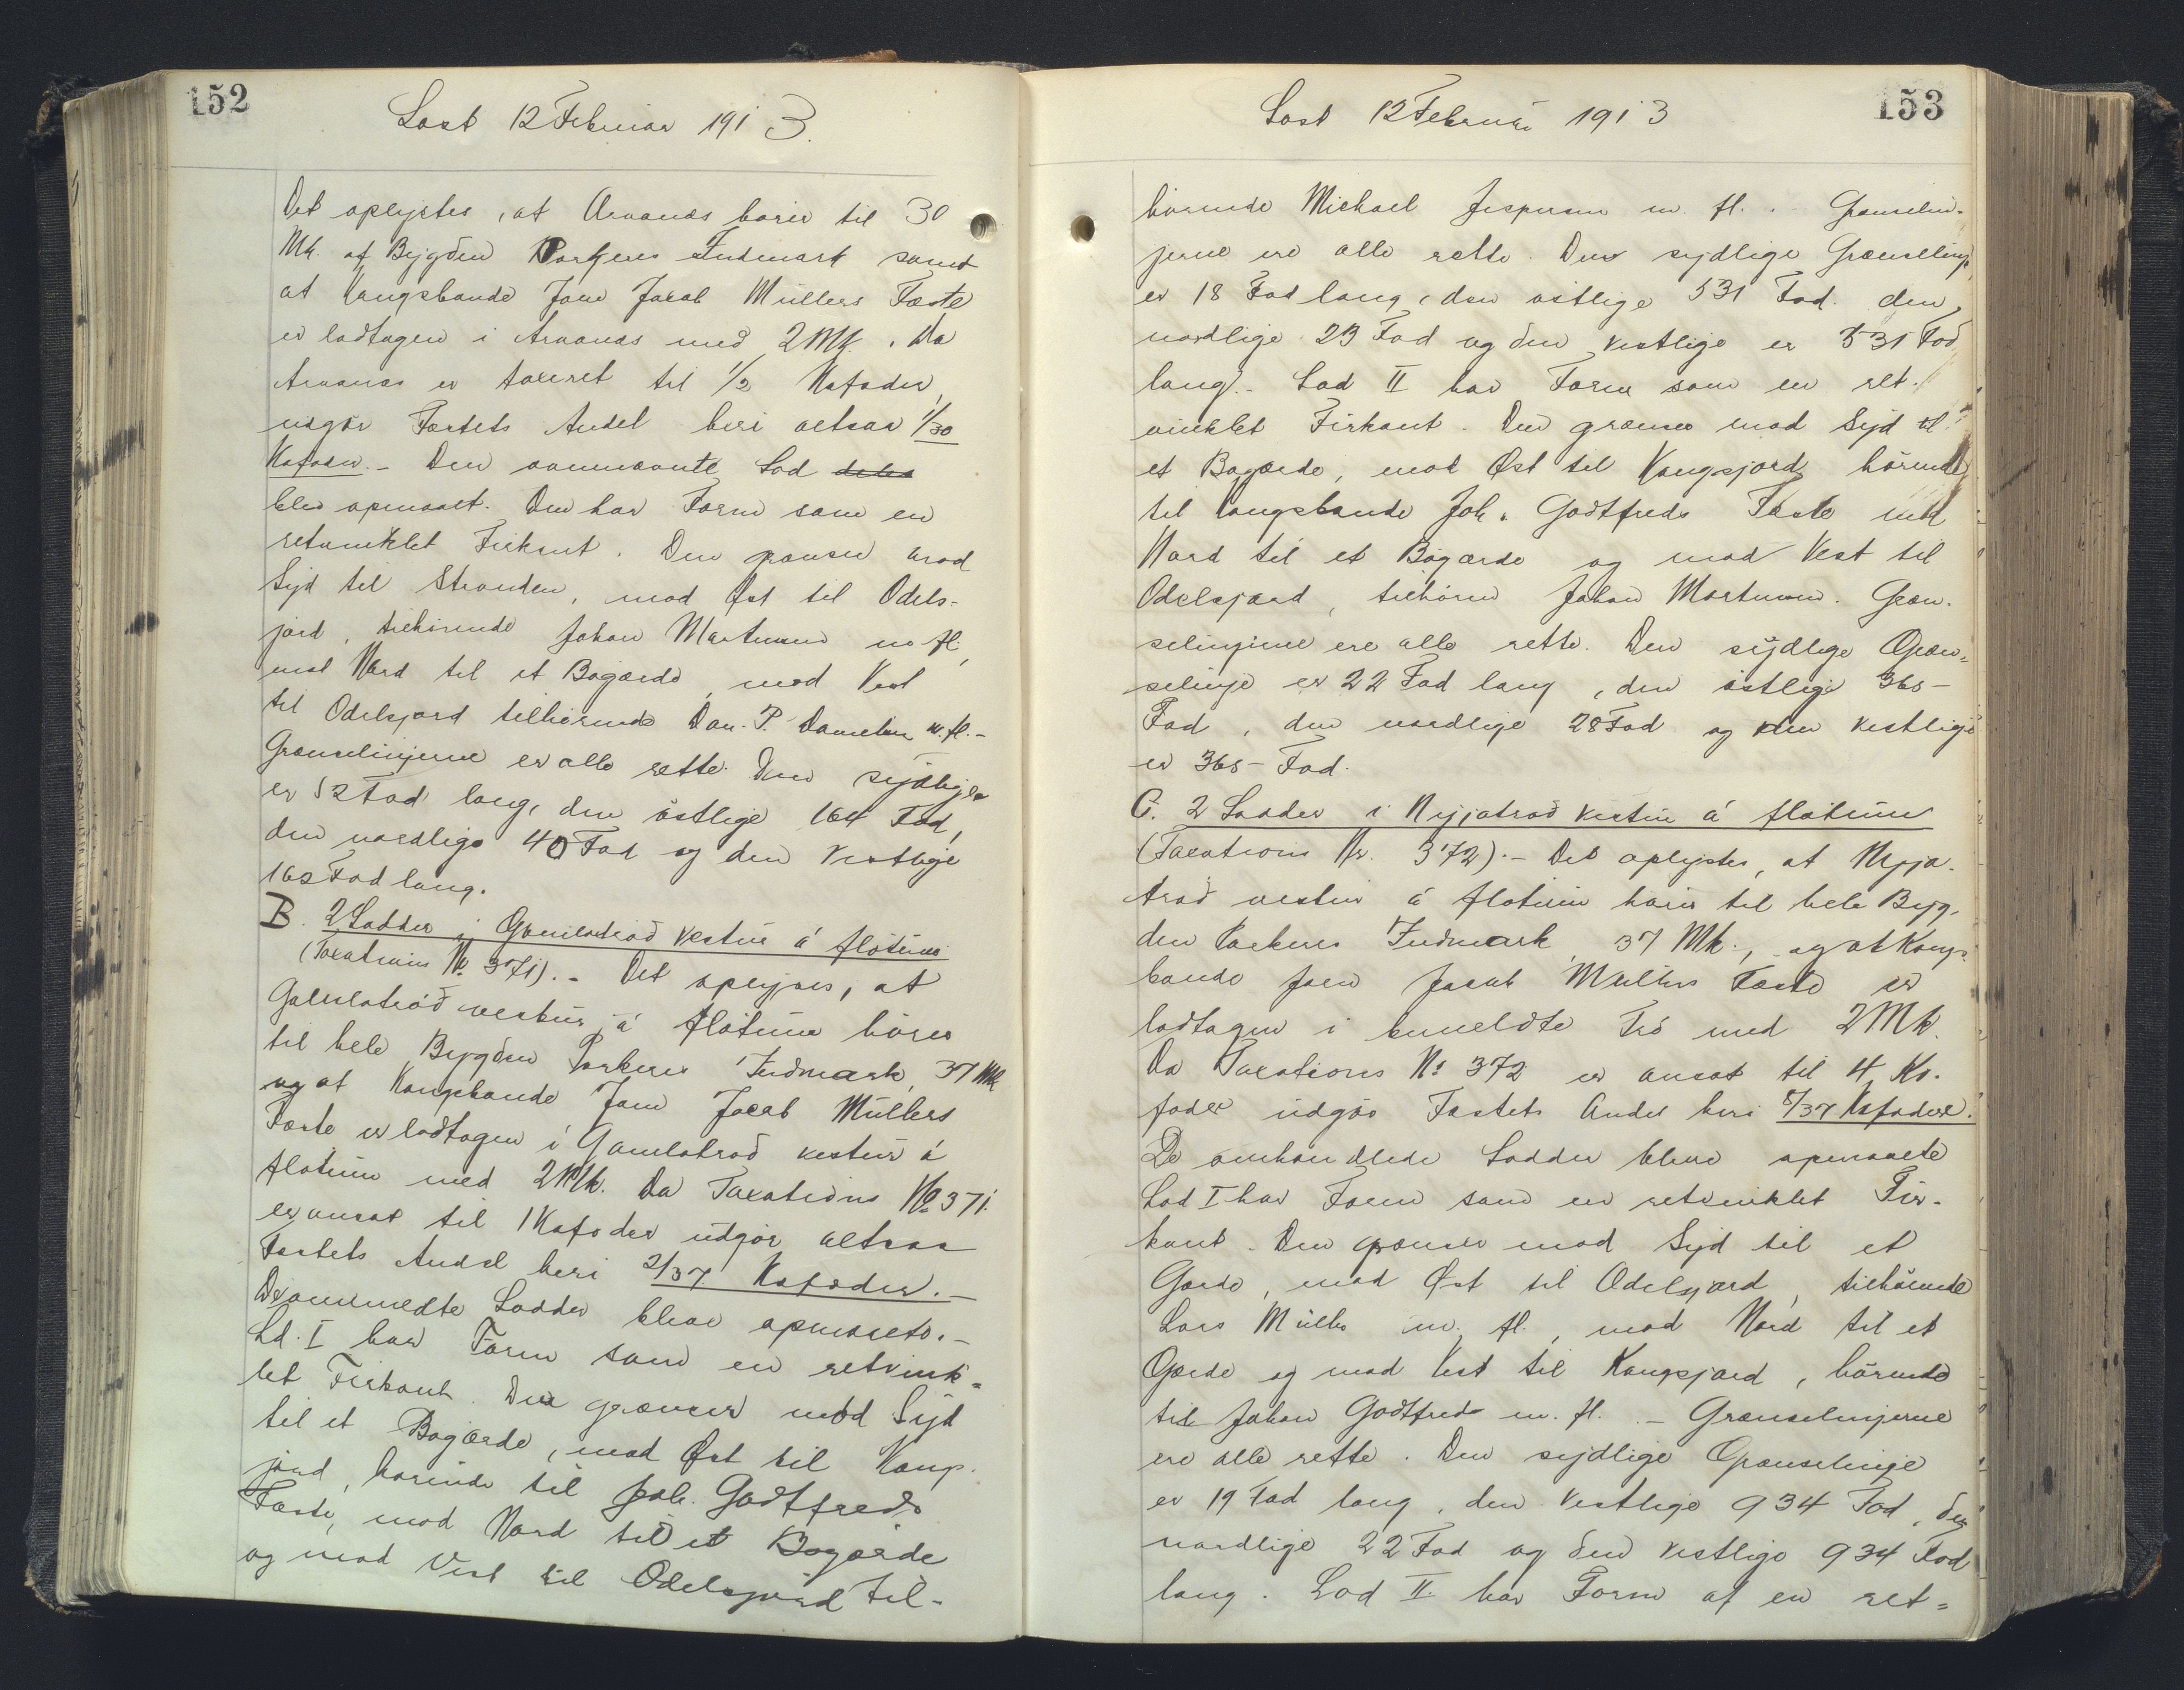 152
Last 12 Februar 1913.
Det oplystes, at Arvanes hører til 30
Mk. af Bygden Porkeres Indmark samt
at Kongsbonde Joen Jacob Müllers Fæste
er lodtagen i Arvanes med 2 Mk. Da
Arvanes er taxeret til 1/2 Kofoder,
udgør Fæstets Andel heri altsaa 1/30
Kofoder. – Den omnævnte Lod deles
blev opmaalt. Den har Form som en
retvinklet Firkant. Den grænser mod
Syd til Stranden, mod Øst til Odels-
jord, tilhørende Johan Mortensen m fl,
mod Nord til et Bøgærde, mod Vest
til Odelsjord tilhørende Dan. P. Danielsen m. fl. –
Grænselinjerne er alle rette. Den sydlige
er 52 Fod lang, den østlige 164 Fod,
den nordlige 40 Fod og den vestlige
162 Fod lang.
B. 2 Lodder i Gamlatrød vestur á fløtinum
(Taxations № 371). – Det oplyses, at
Gamlatrød vestur á fløtinum hører
til hele Bygden Porkeres Indmark, 37 Mk
og at Kongsbonde Joen Jacob Müllers
Fæste er lodtagen i Gamlatrød vestur á
fløtinum med 2 Mk. Da Taxations № 371.
er ansat til 1 Kofoder udgør altsaa
Fæstets Andel heri 2/37 Kofoder. –
De ommeldte Lodder blev opmaalte. –
Ld. I har Form som en retvink-
let Firkant. Den grænser mod Syd
til et Bøgærde, mod Øst til Kongs-
jord, hørende til Joh. Godtfreds
Fæste, mod Nord til et Bøgærde
og mod Vest til Odelsjord til-
153
Last 12 Februar 1913
hørende Michael Jespersen m. fl. . Grænselin-
jerne ere alle rette. Den sydlige Grænselinje
er 18 Fod lang, den østlige 531 Fod. den
nordlige 23 Fod og den vestlige er 531 Fod
lang. – Lod II har Form som en ret-
vinklet Firkant. Den grænser mod Syd til
et Bøgærde, mod Øst til Kongsjord, hørende
til Kongsbonde Joh. Godtfreds Fæste mod
Nord til et Bøgærde og mod Vest til
Odelsjord, tilhøren Johan Mortensen. Græn-
selinjerne ere alle rette. Den sydlige Græn-
selinje er 22 Fod lang, den østlige 365 –
Fod, den nordlige 28 Fod og den vestlige
er 365 – Fod.
C. 2 Lodder i Nyjatrød vestur á fløtinum
(Taxations Nr. 372). – Det oplystes, at Nyja-
trød vestur á fløtinum hører til hele Byg-
den Porkeres Indmark, 37 Mk., og at Kongs-
bonde Joen Jacob Müllers Fæste er
lodtagen i anmeldte Trø med 2 Mk.
Da Taxations № 372 er ansat til 4 Ko-
foder udgør Fæstets Andel heri 8/37 Kofoder.
De omhandlede Lodder bleve opmaalte
Lod I har Form som en retvinklet Fir-
kant. Den grænser mod Syd til et
Gærde, mod Øst til Odelsjord, tilhørende
Lars Müller m. fl., mod Nord til et
Gærde og mod Vest til Kongsjord, hørende
til Johan Godtfred m. fl. – Grænselinjerne
ere alle rette. Den sydlige Grænselinje
er 19 Fod lang, den vestlige 934 Fod, den
nordlige 22 Fod og den vestlige 934 Fod
lang. Lod II. har Form af en ret-